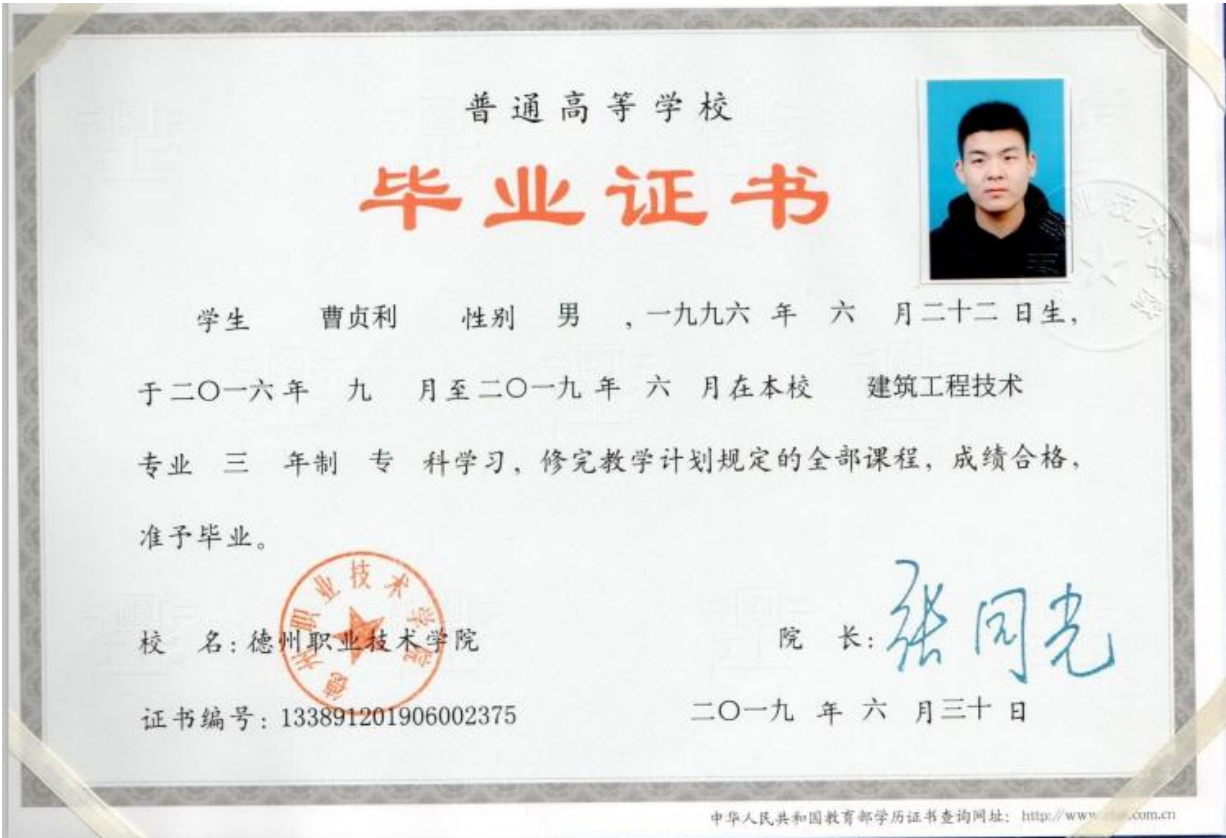 普通高等学校
毕业证书
学生 曹贞利 性别 男 ，一九九六 年 六 月二十二 日生，
于二〇一六年 九 月至二〇一九 年 六 月在本校 建筑工程技术
专业 三 年制 专 科学习，修完教学计划规定的全部课程，成绩合格，
准予毕业。
校 名：德州职业技术学院
院 长：张同光
证书编号：133891201906002375
二〇一九 年 六 月三十 日
德州职业技术学院
业技术学院
中华人民共和国教育部学历证书查询网址： http://www. .com.cn